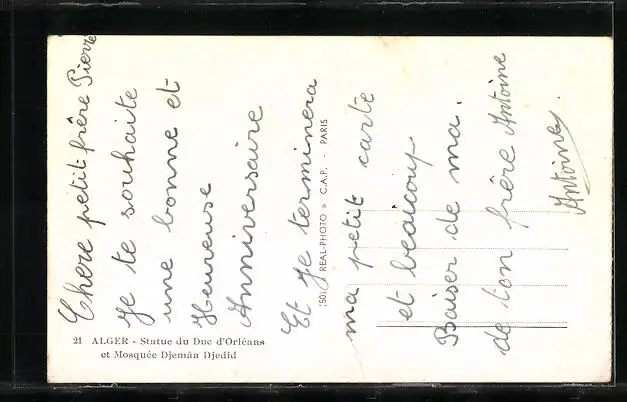 Chere petit frère Pierre
Je te souhaite
une bonne et
Heureuse
Anniversaire
Et je terminera
ma petit carte
et beaicoup
Baiser de ma.
de ton frère Antoine
Antoine
REAL-PHOTO » C.A.P. - PARIS
21 ALGER - Statue du Duc d'Orléans
et Mosquée Djemâa Djedid